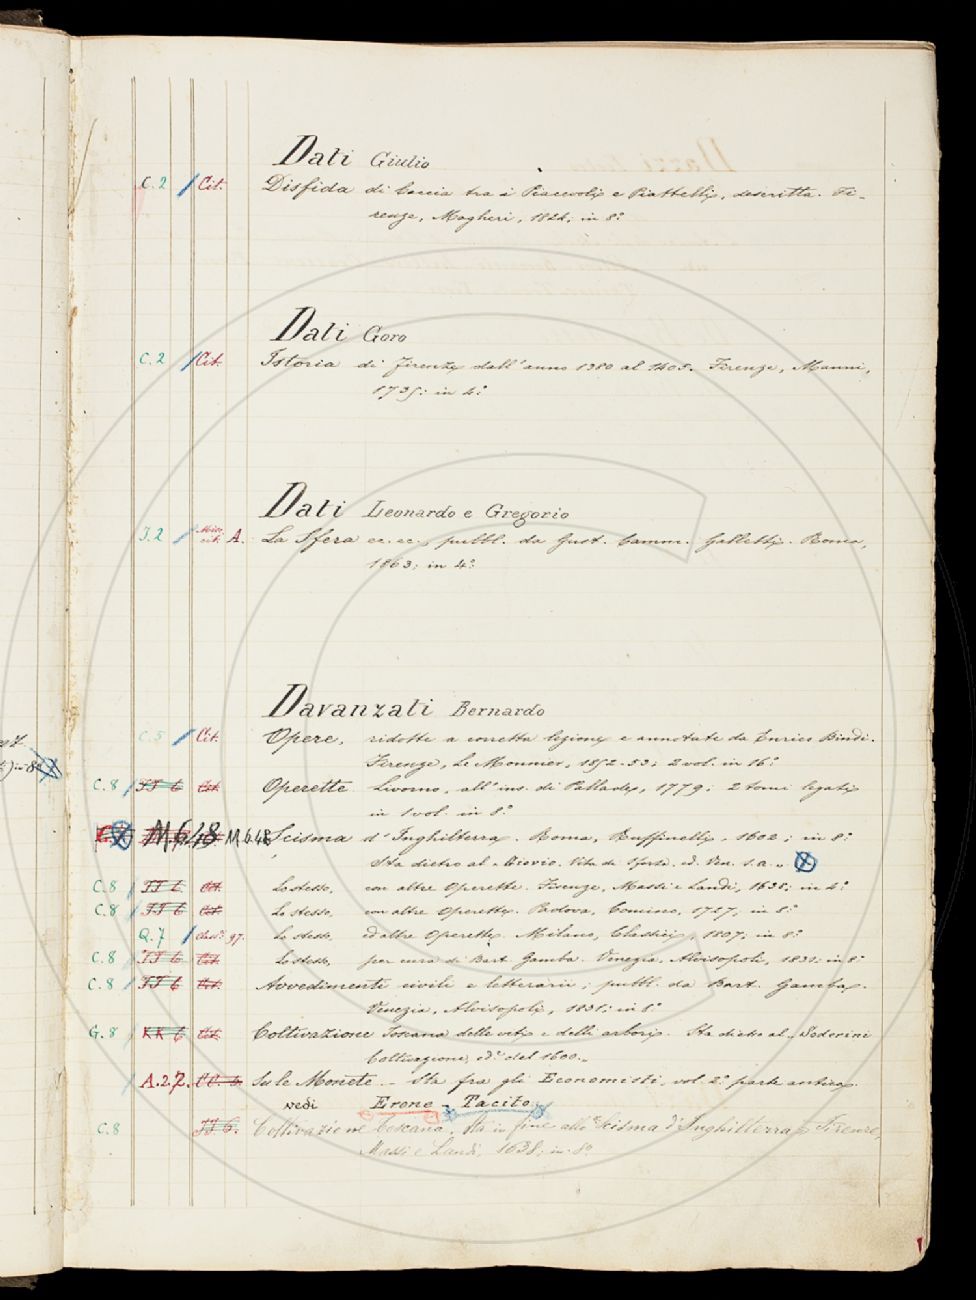 Dati Giulio
C. 2 / Cit. Disfida di Caccia tra i Piacevoli e Piattelli, descritta. Fi-
renze, Magheri, 1824; in 8°
Dati Goro
C. 2 / Cit. Istoria di Firenze dall'anno 1380 al 1405. Firenze, Manni,
1735; in 4°
Dati Leonardo e Gregorio
I. 2 / Misc. cit. A. La Sfera ec. ec., pubbl. da Gust. Camm. Galletti. Roma,
1863; in 4°
Davanzati Bernardo
C. 5 / Cit. Opere, ridotte a corretta lezione e annotate da Enrico Bindi.
Firenze, Le Monnier, 1852-53; 2 vol. in 16°
C. 8 / II 6 Cit. Operette Livorno, all'ins. di Pallade, 1779; 2 tomi legati
in 1 vol. in 8°
M.6.48 M.6.48 Scisma d'Inghilterra. Roma, Ruffinelli, 1602; in 8°
Sta dietro al Giovio. Vita di Sforza, ed. Ven. s. a.
C. 8 / II 6 Cit. Lo stesso, con altre Operette. Firenze, Massi e Landi, 1638; in 4°
C. 8 / II 6 Cit. Lo stesso, con altre Operette. Padova, Comino, 1727; in 8°
Q. 7 / Class. 97. Lo stesso, ed altre Operette. Milano, Classici, 1807; in 8°
C. 8 / II 6 Cit. Lo stesso, per cura di Bart. Gamba. Venezia, Alvisopoli, 1831; in 8°
C. 8 / II 6 Cit. Avvedimenti civili e letterarii; pubbl. da Bart. Gamba.
Venezia, Alvisopoli, 1831; in 8°
G. 8 / KK 6 Cit. Coltivazione Toscana delle viti e delli arbori. Sta dietro al Soderini
Coltivazione, ed.e del 1600.
/ A.2.7. CC. 6. Su le Monete - Sta fra gli Economisti, vol. 2° parte antica.
vedi Erone - Tacito
C. 8 II 6. Coltivazione Toscana. Sta in fine allo Scisma d'Inghilterra, Firenze,
Massi e Landi, 1638; in 8°